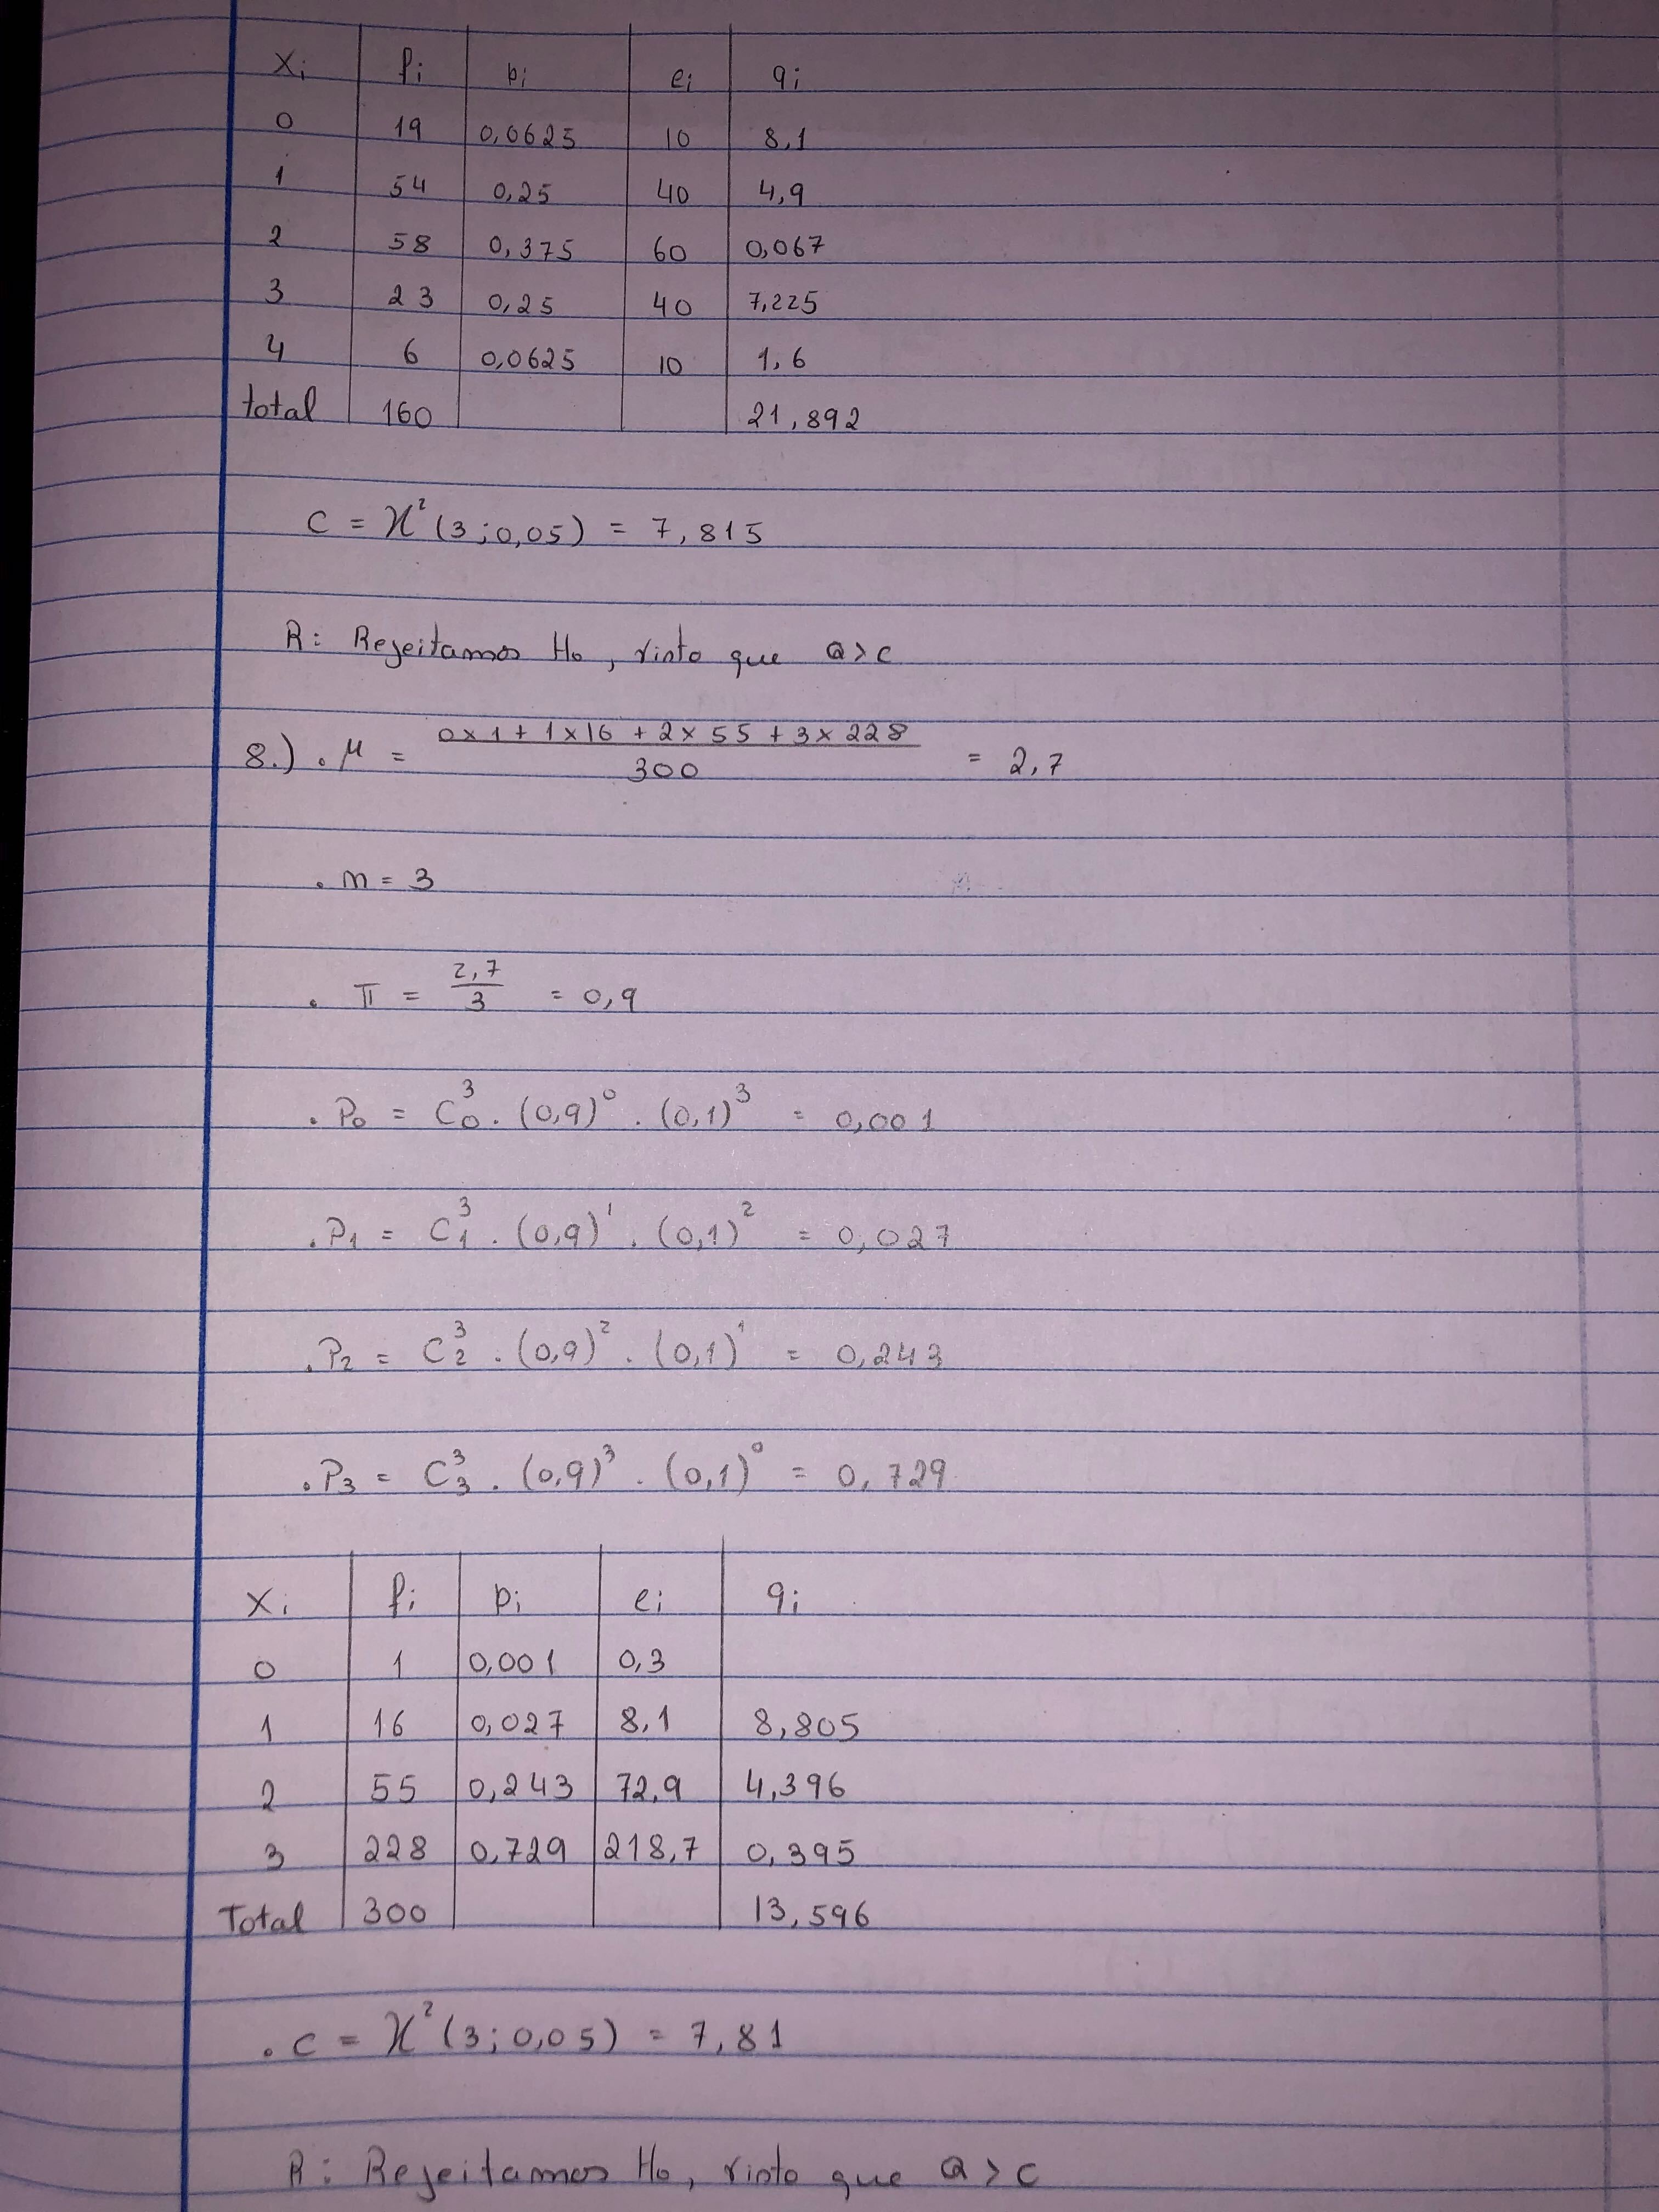 xi fi pi ei qi
0 19 0,0625 10 8,1
1 54 0,25 40 4,9
2 58 0,375 60 0,067
3 23 0,25 40 7,225
4 6 0,0625 10 1,6
total 160 21,892
C = χ²(3;0,05) = 7,815
R: Rejeitamos H₀, visto que Q>C
8.) . μ = (0x1 + 1x16 + 2x55 + 3x228)/300 = 2,7
. m = 3
. π = 2,7/3 = 0,9
. P₀ = C₀³ . (0,9)⁰ . (0,1)³ = 0,001
. P₁ = C₁³ . (0,9)¹ . (0,1)² = 0,027
. P₂ = C₂³ . (0,9)² . (0,1)¹ = 0,243
. P₃ = C₃³ . (0,9)³ . (0,1)⁰ = 0,729
xi fi pi ei qi
0 1 0,001 0,3
1 16 0,027 8,1 8,805
2 55 0,243 72,9 4,396
3 228 0,729 218,7 0,395
Total 300 13,596
. C = χ²(3;0,05) = 7,81
R: Rejeitamos H₀, visto que Q>C